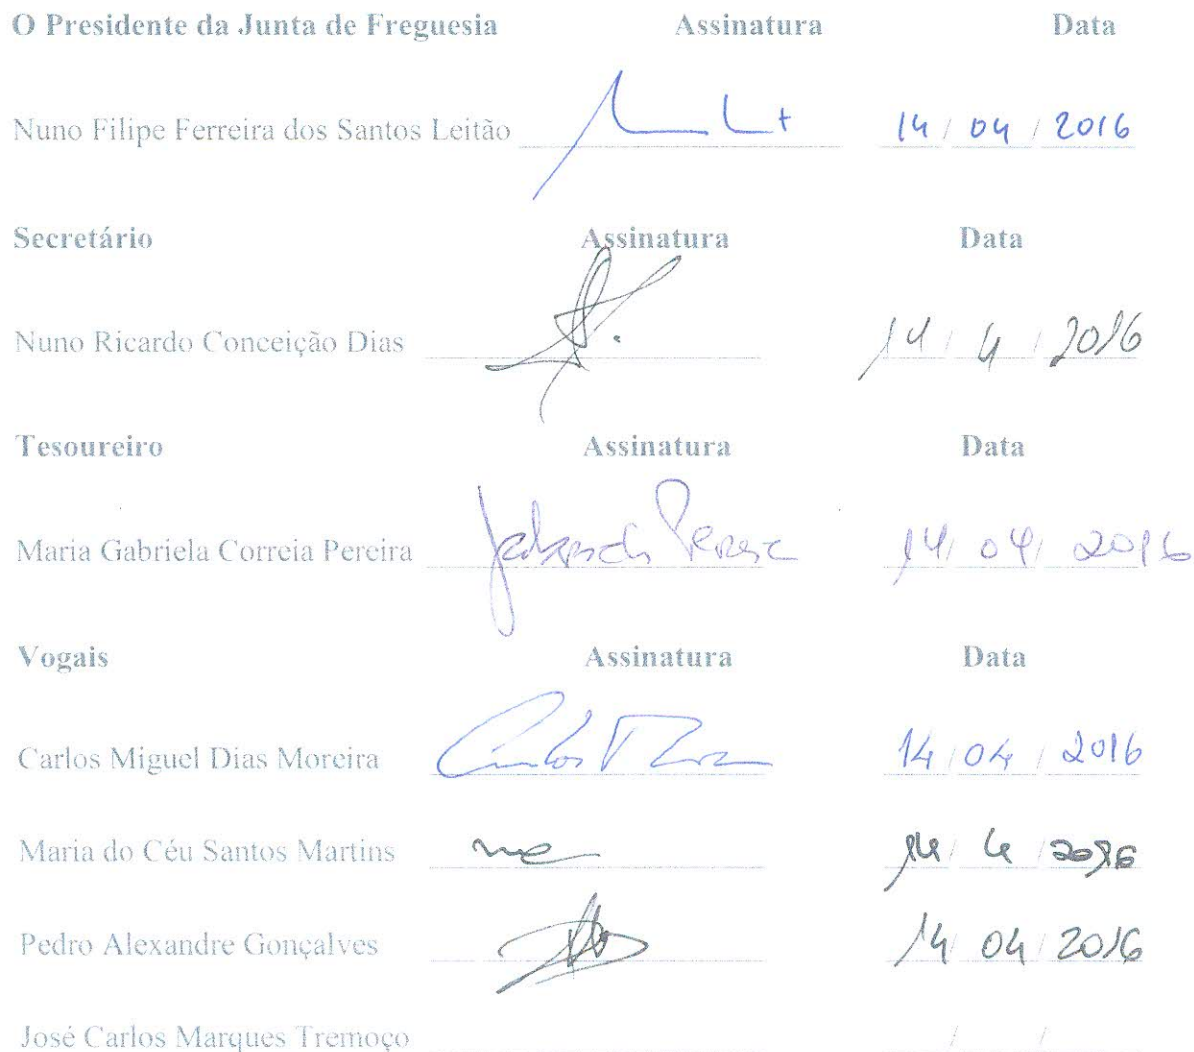 O Presidente da Junta de Freguesia Assinatura Data
Nuno Filipe Ferreira dos Santos Leitão 14 / 04 / 2016
Secretário Assinatura Data
Nuno Ricardo Conceição Dias 14 / 4 / 2016
Tesoureiro Assinatura Data
Maria Gabriela Correia Pereira Pereira 14 / 04 / 2016
Vogais Assinatura Data
Carlos Miguel Dias Moreira Carlos 14 / 04 / 2016
Maria do Céu Santos Martins 14 / 4 / 2016
Pedro Alexandre Gonçalves 14 / 04 / 2016
José Carlos Marques Tremoço / /